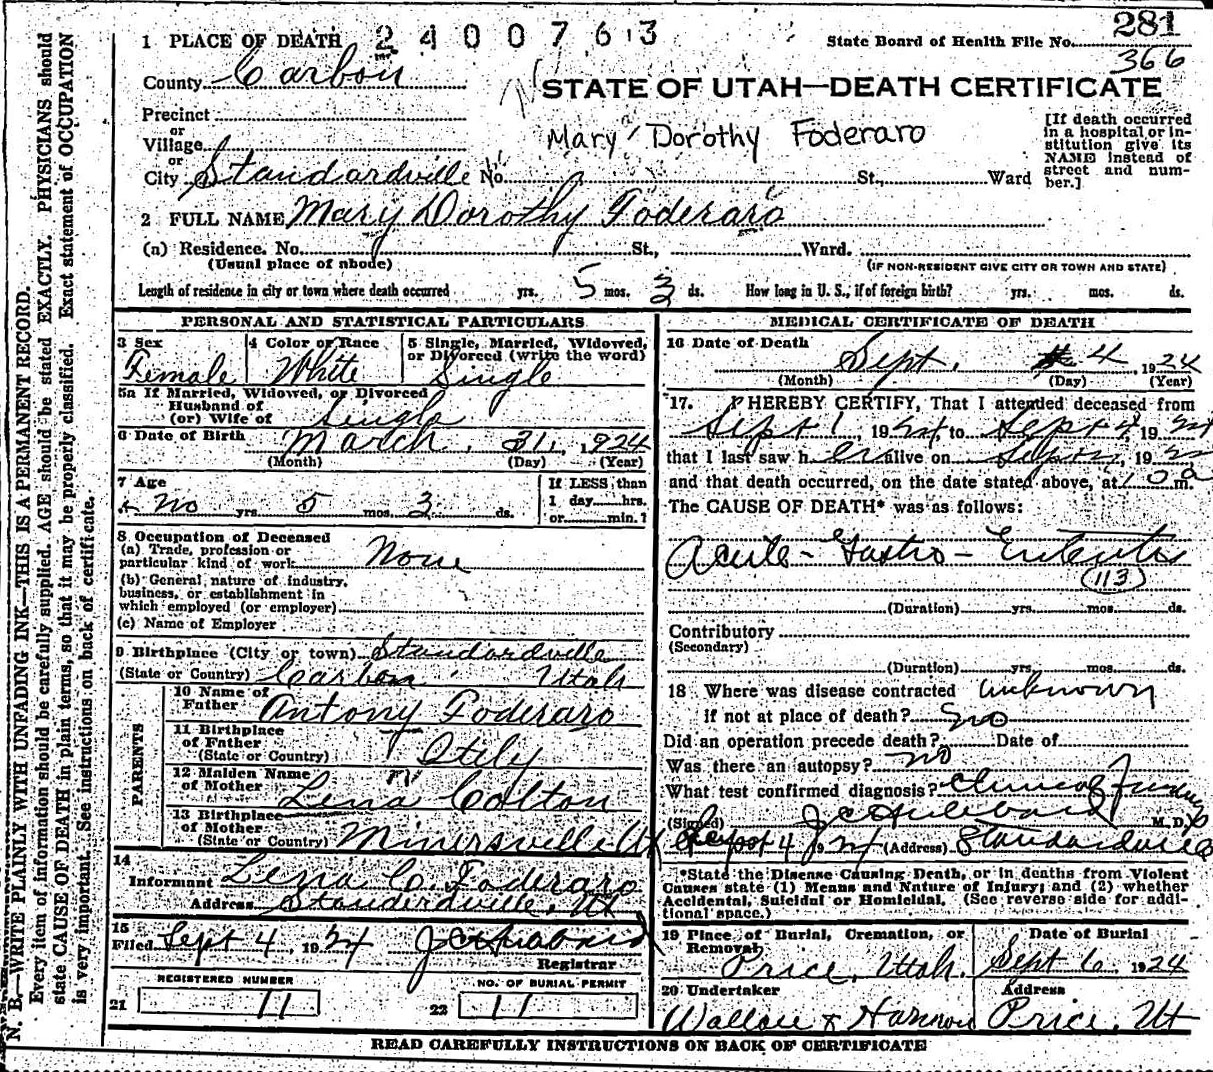 281
1 PLACE OF DEATH 2400763 State Board of Health File No. 366
County Carbon
STATE OF UTAH—DEATH CERTIFICATE
Precinct
or
Village
or
City Standardville No. St., Ward
Mary Dorothy Foderaro
[If death occurred
in a hospital or in-
stitution give its
NAME instead of
street and num-
ber.]
2 FULL NAME Mary Dorothy Foderaro
(a) Residence. No. St., Ward.
(Usual place of abode) (IF NON-RESIDENT GIVE CITY OR TOWN AND STATE)
Length of residence in city or town where death occurred yrs. 5 mos. 3 ds. How long in U. S., if of foreign birth? yrs. mos. ds.
PERSONAL AND STATISTICAL PARTICULARS
3 Sex 4 Color or Race 5 Single, Married, Widowed,
or Divorced (write the word)
Female White Single
5a If Married, Widowed, or Divorced
Husband of
(or) Wife of Single
6 Date of Birth March 31, 1924
(Month) (Day) (Year)
7 Age If LESS than
1 day hrs.
or min.?
No yrs. 5 mos. 3 ds.
8 Occupation of Deceased
(a) Trade, profession or
particular kind of work None
(b) General nature of industry,
business, or establishment in
which employed (or employer)
(c) Name of Employer
9 Birthplace (City or town) Standardville
(State or Country) Carbon Utah
PARENTS
10 Name of
Father Antony Foderaro
11 Birthplace
of Father
(State or Country) Itely
12 Maiden Name
of Mother Lena Colton
13 Birthplace
of Mother
(State or Country) Minersville Ut
14
Informant Lena C. Foderaro
Address Standerdville, Ut
15
Filed Sept 4, 1924
Registrar
REGISTERED NUMBER NO. OF BURIAL PERMIT
21 11 22 11
MEDICAL CERTIFICATE OF DEATH
16 Date of Death
Sept. 4 1924
(Month) (Day) (Year)
17. I HEREBY CERTIFY, That I attended deceased from
Sept 1, 1924, to Sept 4, 1924
that I last saw her alive on Sept 4, 1924
and that death occurred, on the date stated above, at 10 a m.
The CAUSE OF DEATH* was as follows:
Acute-Gastro-Enteritis
(113)
(Duration) yrs. mos. ds.
Contributory
(Secondary)
(Duration) yrs. mos. ds.
18 Where was disease contracted unknown
If not at place of death? no
Did an operation precede death? Date of
Was there an autopsy? no
What test confirmed diagnosis? Clinical
(Signed) M. D.
Sept 4 1924 (Address) Standardville
*State the Disease Causing Death, or in deaths from Violent
Causes state (1) Means and Nature of Injury; and (2) whether
Accidental, Suicidal or Homicidal. (See reverse side for addi-
tional space.)
19 Place of Burial, Cremation, or
Removal Date of Burial
Price, Utah. Sept 6 1924
20 Undertaker Address
Wallace & Harmon Price, Ut
READ CAREFULLY INSTRUCTIONS ON BACK OF CERTIFICATE
N. B.—WRITE PLAINLY WITH UNFADING INK—THIS IS A PERMANENT RECORD.
Every item of information should be carefully supplied. AGE should be stated EXACTLY. PHYSICIANS should
state CAUSE OF DEATH in plain terms, so that it may be properly classified. Exact statement of OCCUPATION
is very important. See instructions on back of certificate.